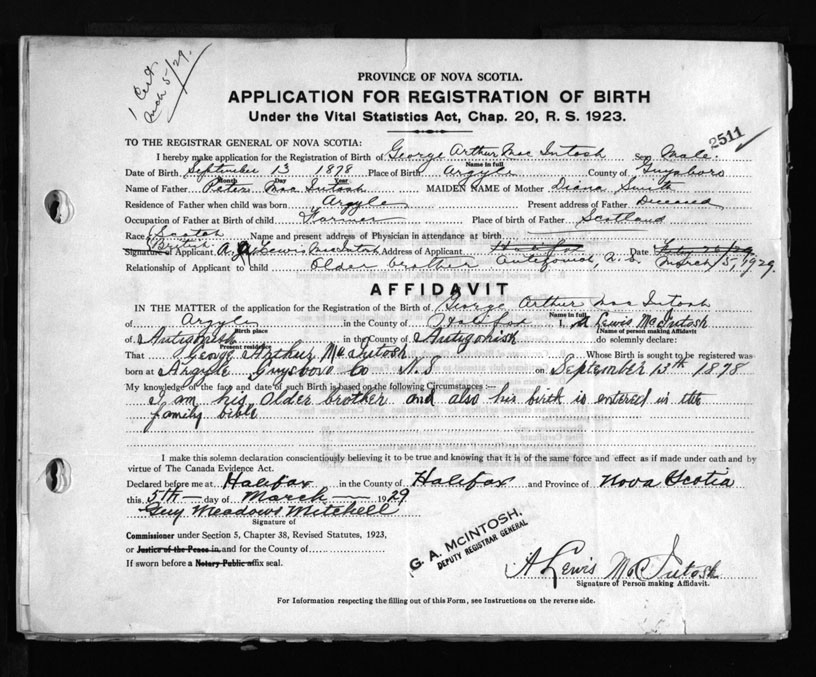 1 Cert.
Mch 5/29.
PROVINCE OF NOVA SCOTIA.
APPLICATION FOR REGISTRATION OF BIRTH
Under the Vital Statistics Act, Chap. 20, R. S. 1923.
2511
TO THE REGISTRAR GENERAL OF NOVA SCOTIA:
I hereby make application for the Registration of Birth of George Arthur MacIntosh Sex Male.
Name in full
Date of Birth September 13 1878 Place of Birth Argyle County of Guysboro
Month Day Year
Name of Father Peter MacIntosh MAIDEN NAME of Mother Diana Smith
Residence of Father when child was born Argyle Present address of Father Deceased
Occupation of Father at Birth of child Farmer Place of birth of Father Scotland
Race Scotch Name and present address of Physician in attendance at birth
British
Signature of Applicant A. Lewis McIntosh Address of Applicant Halifax Date
Antigonish, N.S. March 5, 1929.
Relationship of Applicant to child Older brother
AFFIDAVIT
IN THE MATTER of the application for the Registration of the Birth of George Arthur MacIntosh
Name in full
of Argyle in the County of Halifax I, A Lewis McIntosh
Birth place Name of person making Affidavit
of Antigonish in the County of Antigonish do solemnly declare:
Present residence
That George Arthur McIntosh Whose Birth is sought to be registered was
born at Argyle Guysboro Co N.S on September 13th 1878
My knowledge of the fact and date of such Birth is based on the following Circumstances:—
I am his older brother and also his birth is entered in the
family bible
I make this solemn declaration conscientiously believing it to be true and knowing that it is of the same force and effect as if made under oath and by
virtue of The Canada Evidence Act.
Declared before me at Halifax in the County of Halifax and Province of Nova Scotia
this 5th day of March 1929
Guy Meadows Mitchell
Signature of
Commissioner under Section 5, Chapter 38, Revised Statutes, 1923,
or Justice of the Peace in and for the County of
If sworn before a Notary Public affix seal.
G. A. McINTOSH.
DEPUTY REGISTRAR GENERAL
A Lewis McIntosh
Signature of Person making Affidavit.
For Information respecting the filling out of this Form, see Instructions on the reverse side.